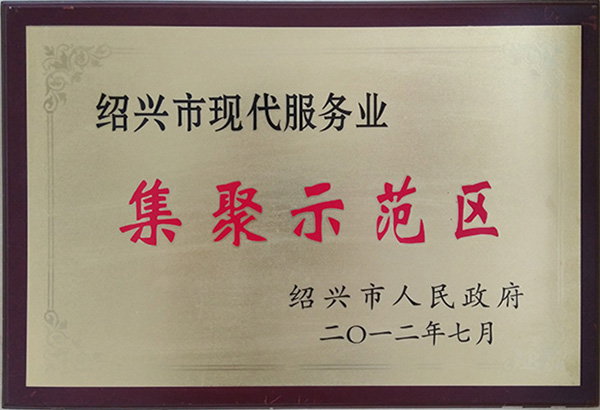 绍兴市现代服务业
集聚示范区
绍兴市人民政府
二〇一二年七月